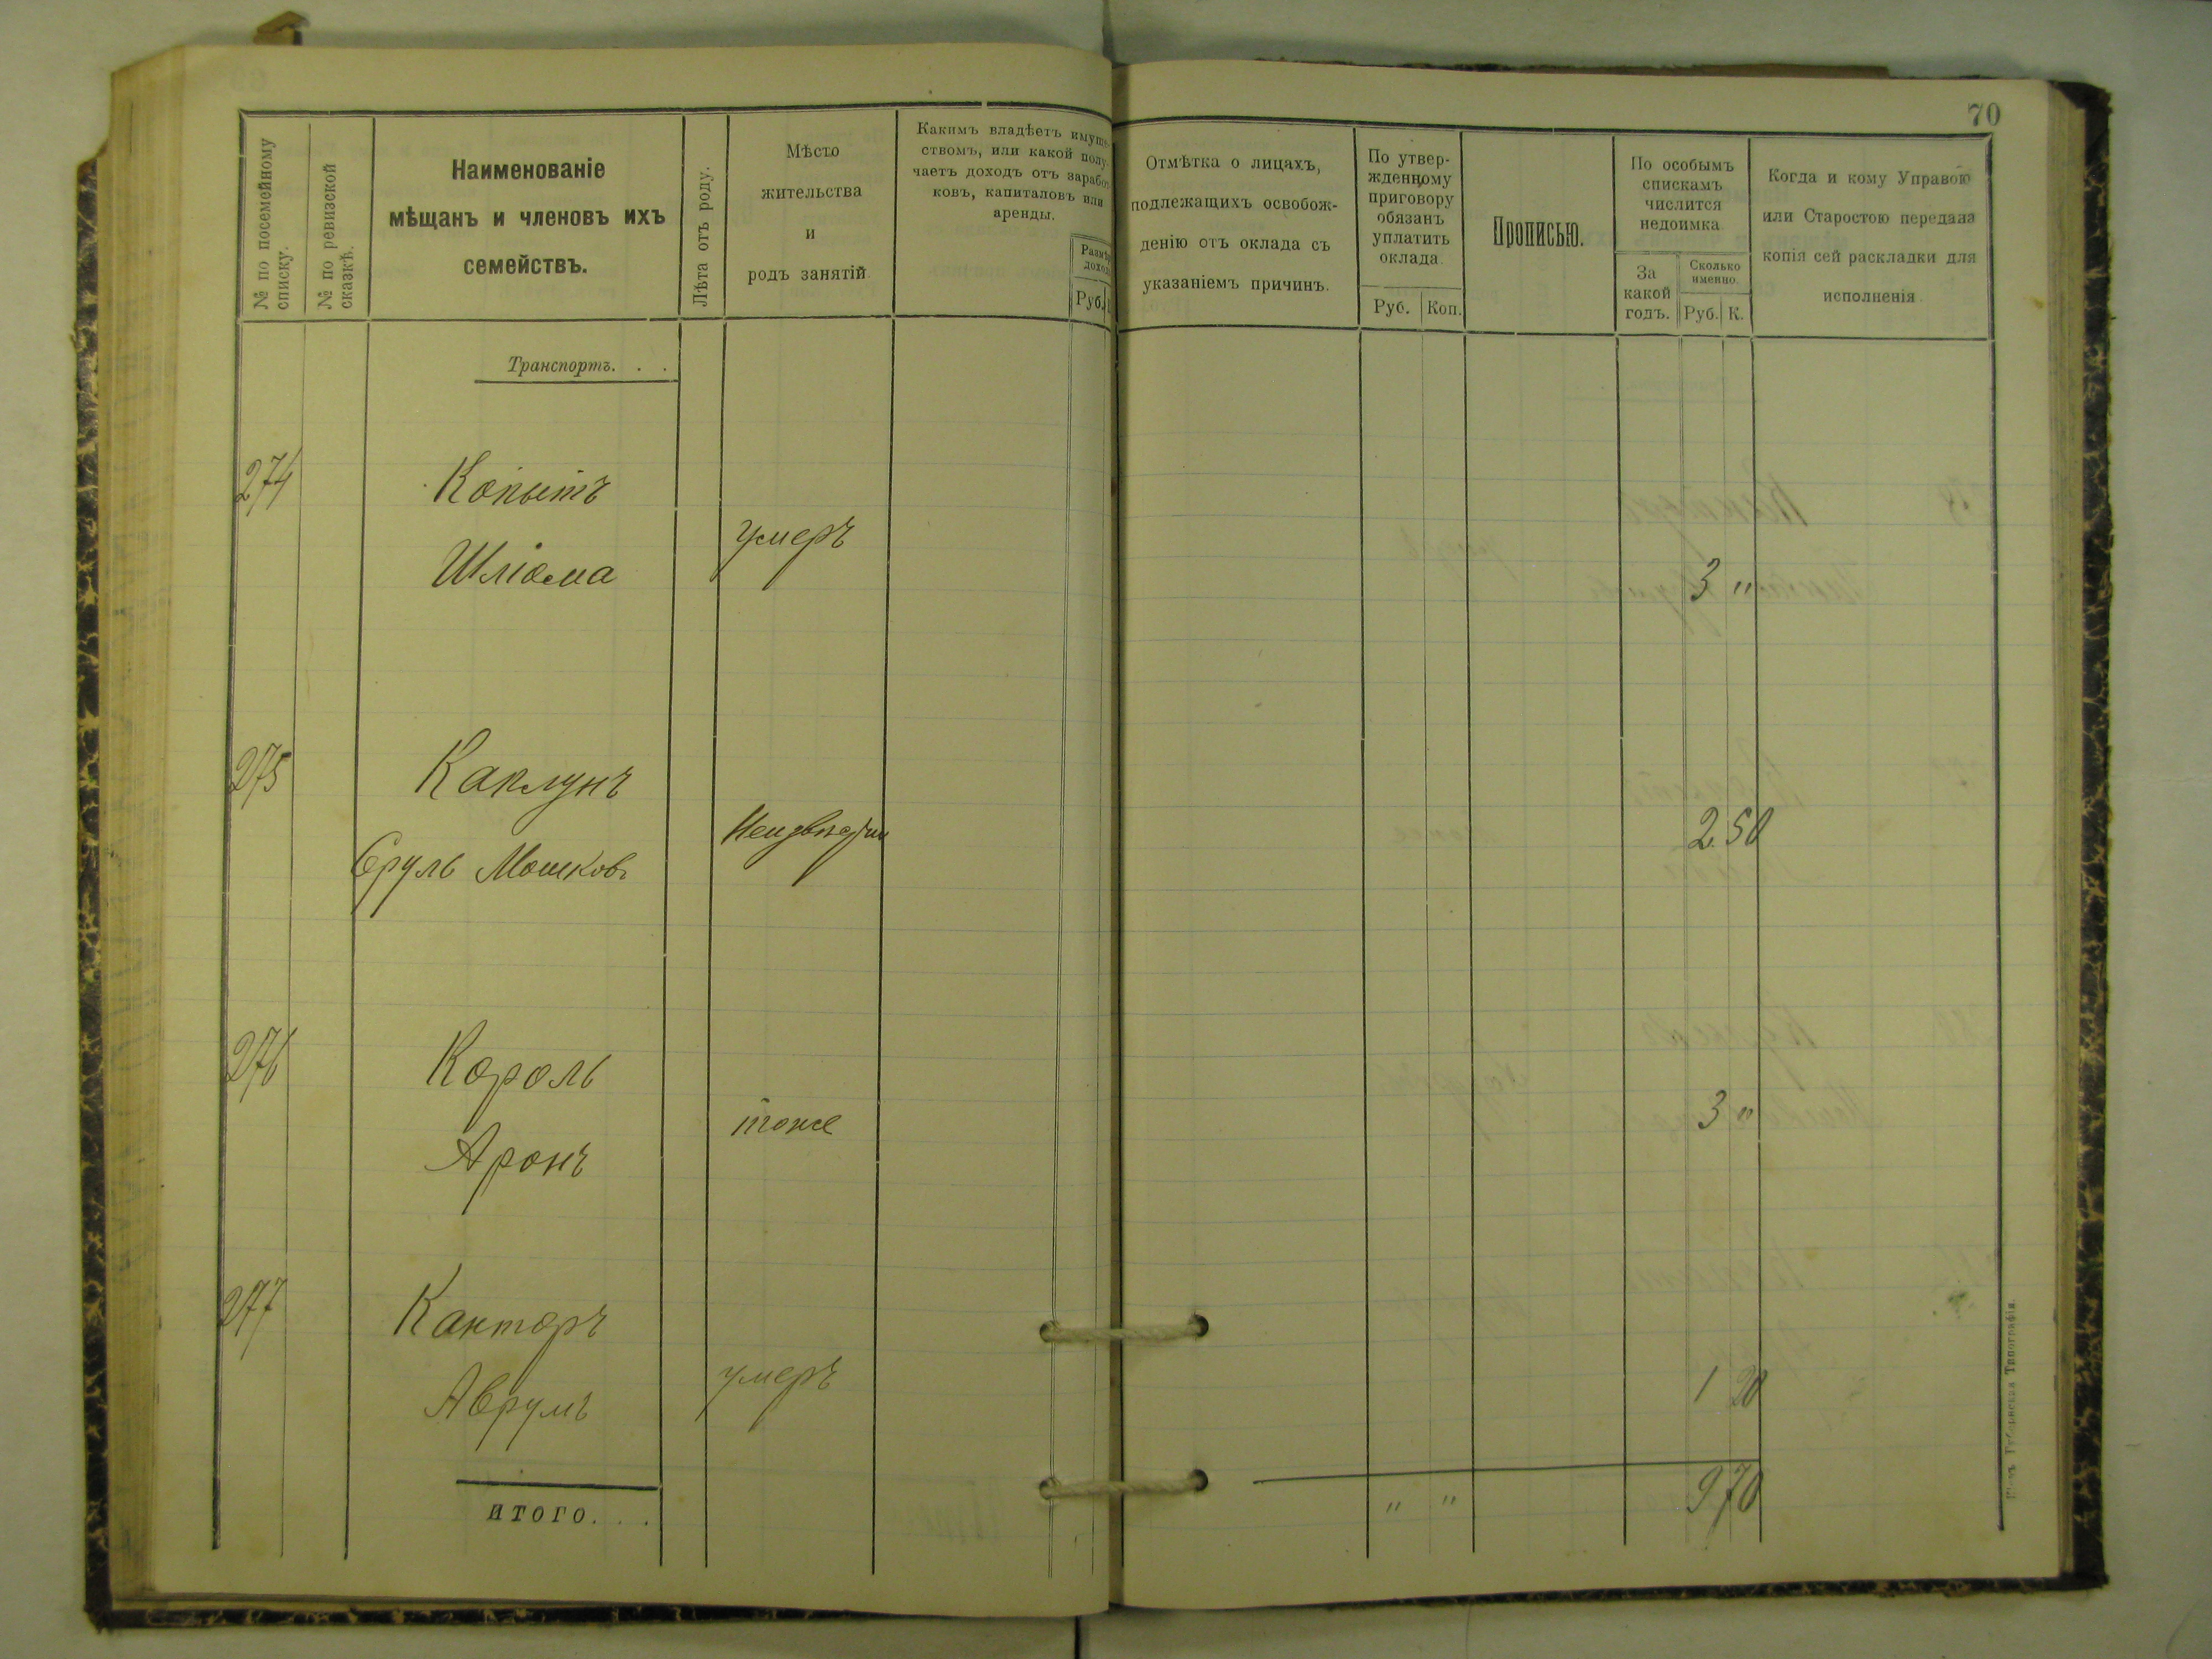 70
№ по посемейному
списку.
№ по ревизской
сказкѣ.
Наименованіе
мѣщанъ и членовъ ихъ
семействъ.
Лѣта отъ роду.
Мѣсто
жительства
и
родъ занятій.
Какимъ владѣетъ имуще-
ствомъ, или какой полу-
чаетъ доходъ отъ заработ-
ковъ, капиталовъ или
аренды.
Размѣръ
дохода
Руб.
Отмѣтка о лицахъ,
подлежащихъ освобож-
денію отъ оклада съ
указаніемъ причинъ.
По утвер-
жденному
приговору
обязанъ
уплатить
оклада.
Руб. Коп.
Прописью.
По особымъ
спискамъ
числится
недоимка
За
какой
годъ.
Сколько
именно.
Руб. К.
Когда и кому Управою
или Старостою передана
копія сей раскладки для
исполненія.
Транспортъ. . .
274 Копытъ
умеръ
Шліома 3 "
275 Каклунъ
Сруль Мошковъ 2 50
276 Король
тоже 3 "
Аронъ
277 Канторъ
умеръ 1 20
Аврумъ
итого. . . " " 9 70
Типографія.